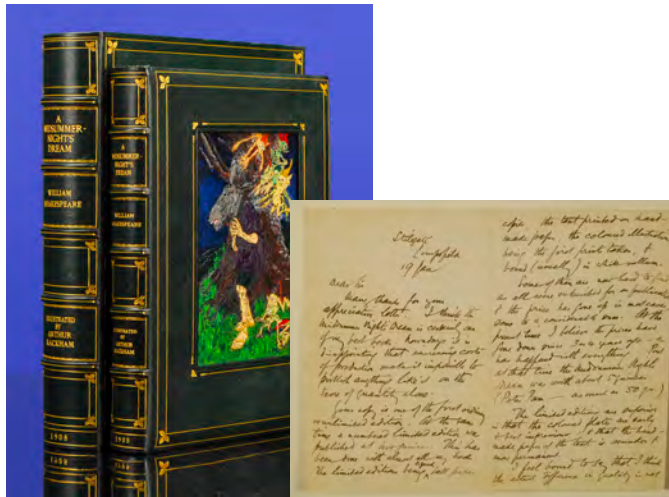 A
MIDSUMMER-
NIGHT'S
DREAM
WILLIAM
SHAKESPEARE
ILLUSTRATED
BY
ARTHUR
RACKHAM
1908
A
MIDSUMMER-
NIGHT'S
DREAM
WILLIAM
SHAKESPEARE
ILLUSTRATED
BY
ARTHUR
RACKHAM
1908
Limpsfield
19 Jan
Dear Sir
Many thanks for your
appreciative letter. I think the
Midsummer Night's Dream is certainly one
of my best books. Nowadays it is
disappointing that increasing costs
of production make it impossible to
publish anything like it on the
same
Your copy is one of the first
unlimited edition. At the same
time a numbered limited edition was
published at This has
been done with almost all my books
The limited editions being
the text printed on hand
made paper, the coloured illustrations
being the first prints taken &
bound (usually) in white vellum.
Some of them are now hard to find
as all were
& the price has gone up in most cases
some to a considerable sum. At the
present time I believe the prices have
gone down since 2 or 3 years ago as
has happened with everything.
at that time the Midsummer Night's
Dream was worth about
(Peter Pan as much as 50 gns)
The limited editions are superior
in that the coloured plates are early
& best impressions & that the hand-
made paper of the text is sounder &
more permanent.
I feel bound to say that I think
the actual difference in quality is not